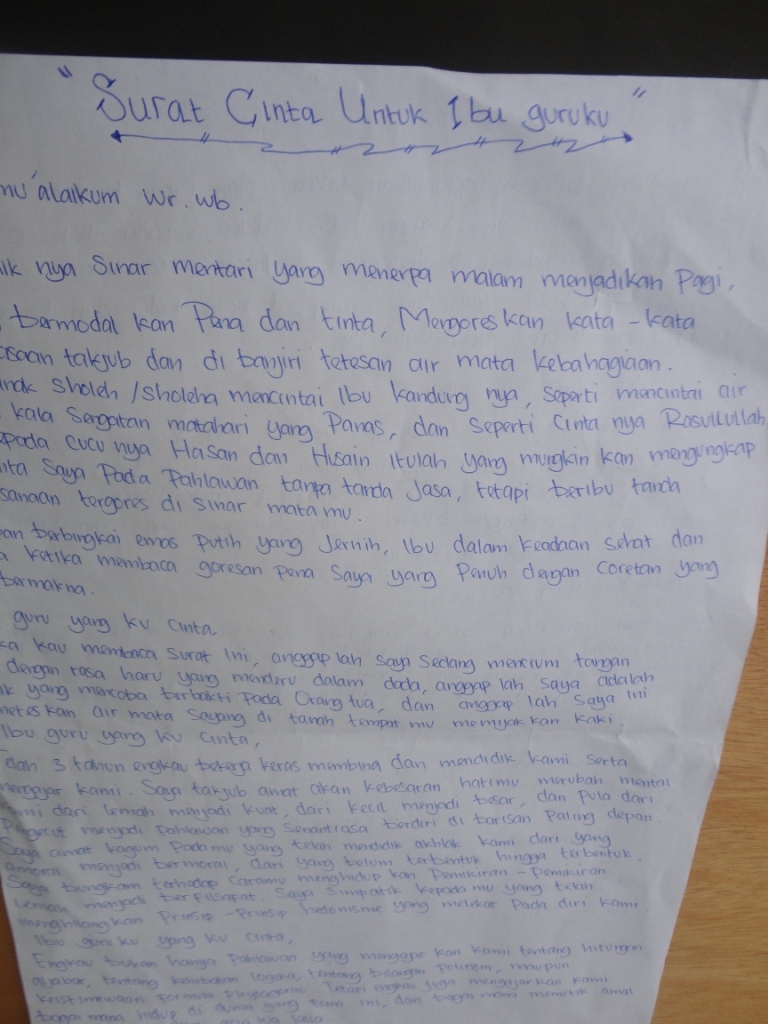 "Surat Cinta Untuk Ibu guruku"
mu'alaikum wr. wb.
ik nya Sinar mentari yang menerpa malam menjadikan Pagi,
bermodal kan Pena dan tinta, Mengoreskan kata - kata
asaan takjub dan di banjiri tetesan air mata kebahagiaan.
anak Sholeh / Sholeha mencintai Ibu kandung nya, Seperti mencintai air
kala Sengatan matahari yang Panas, dan Seperti Cinta nya Rasullullah
epada cucu nya Hasan dan Husain itulah yang mungkin kan mengungkap
nta Saya Pada Pahlawan tanpa tanda Jasa, tetapi beribu tanda
sanaan tergores di Sinar mata mu.
an berbingkai emas Putih yang Jernih, Ibu dalam keadaan sehat dan
a ketika membaca goresan Pena Saya yang Penuh dengan Coretan yang
bermakna.
guru yang ku cinta.
ka kau membaca Surat ini, anggap lah Saya Sedang mencium tangan
dengan rasa haru yang menderu dalam dada, anggap lah Saya adalah
k yang mencoba berbakti Pada Orang tua, dan anggap lah Saya ini
neteskan air mata Sayang di tanah tempat mu memijak kan kaki.
Ibu guru yang ku Cinta,
elah 3 tahun engkau bekerja keras membina dan mendidik kami Serta
kami. Saya takjub amat akan kebesaran hatimu merubah mental
kami dari lemah menjadi kuat, dari kecil menjadi besar, dan Pula dari
Pengecut menjadi Pahlawan yang Senantiasa berdiri di barisan Paling depan.
Saya amat kagum Pada mu yang telah mendidik akhlak kami dari yang
amoral menjadi bermoral, dari yang belum terbentuk hingga terbentuk.
Saya bungkam terhadap Caramu menghidup kan Pemikiran - Pemikiran
Lemah menjadi berfilsafat. Saya Simpatik kepada mu yang telah
menghilangkan Prinsip - Prinsip hedonisme yang melekat Pada diri kami.
Ibu guru ku yang ku Cinta,
Engkau bukan hanya Pahlawan yang mengajar kan kami tentang hitungan
aljabar, tentang logika, tentang bilangan Polinom, maupun
keistimewaan formula Phytagoras. Tetapi engkau juga mengajarkan kami
bagai mana hidup di dunia yang fana ini, dan bagai mana memetik amal